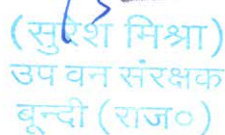 (सुरेश मिश्रा)
उप वन संरक्षक
बून्दी (राज०)